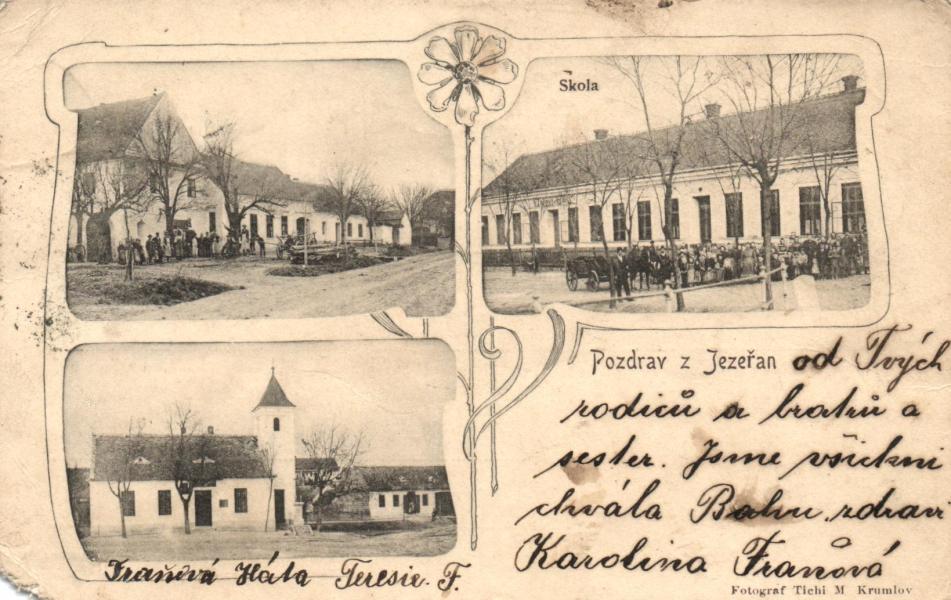 Škola
Pozdrav z Jezeřan od Tvých
rodičů a bratrů a
sester. Jsme všickni
chvála Bohu zdravi
Karolina Fraňová
Fraňová Háta Teresie. F.
Fotograf Tichi M Krumlov